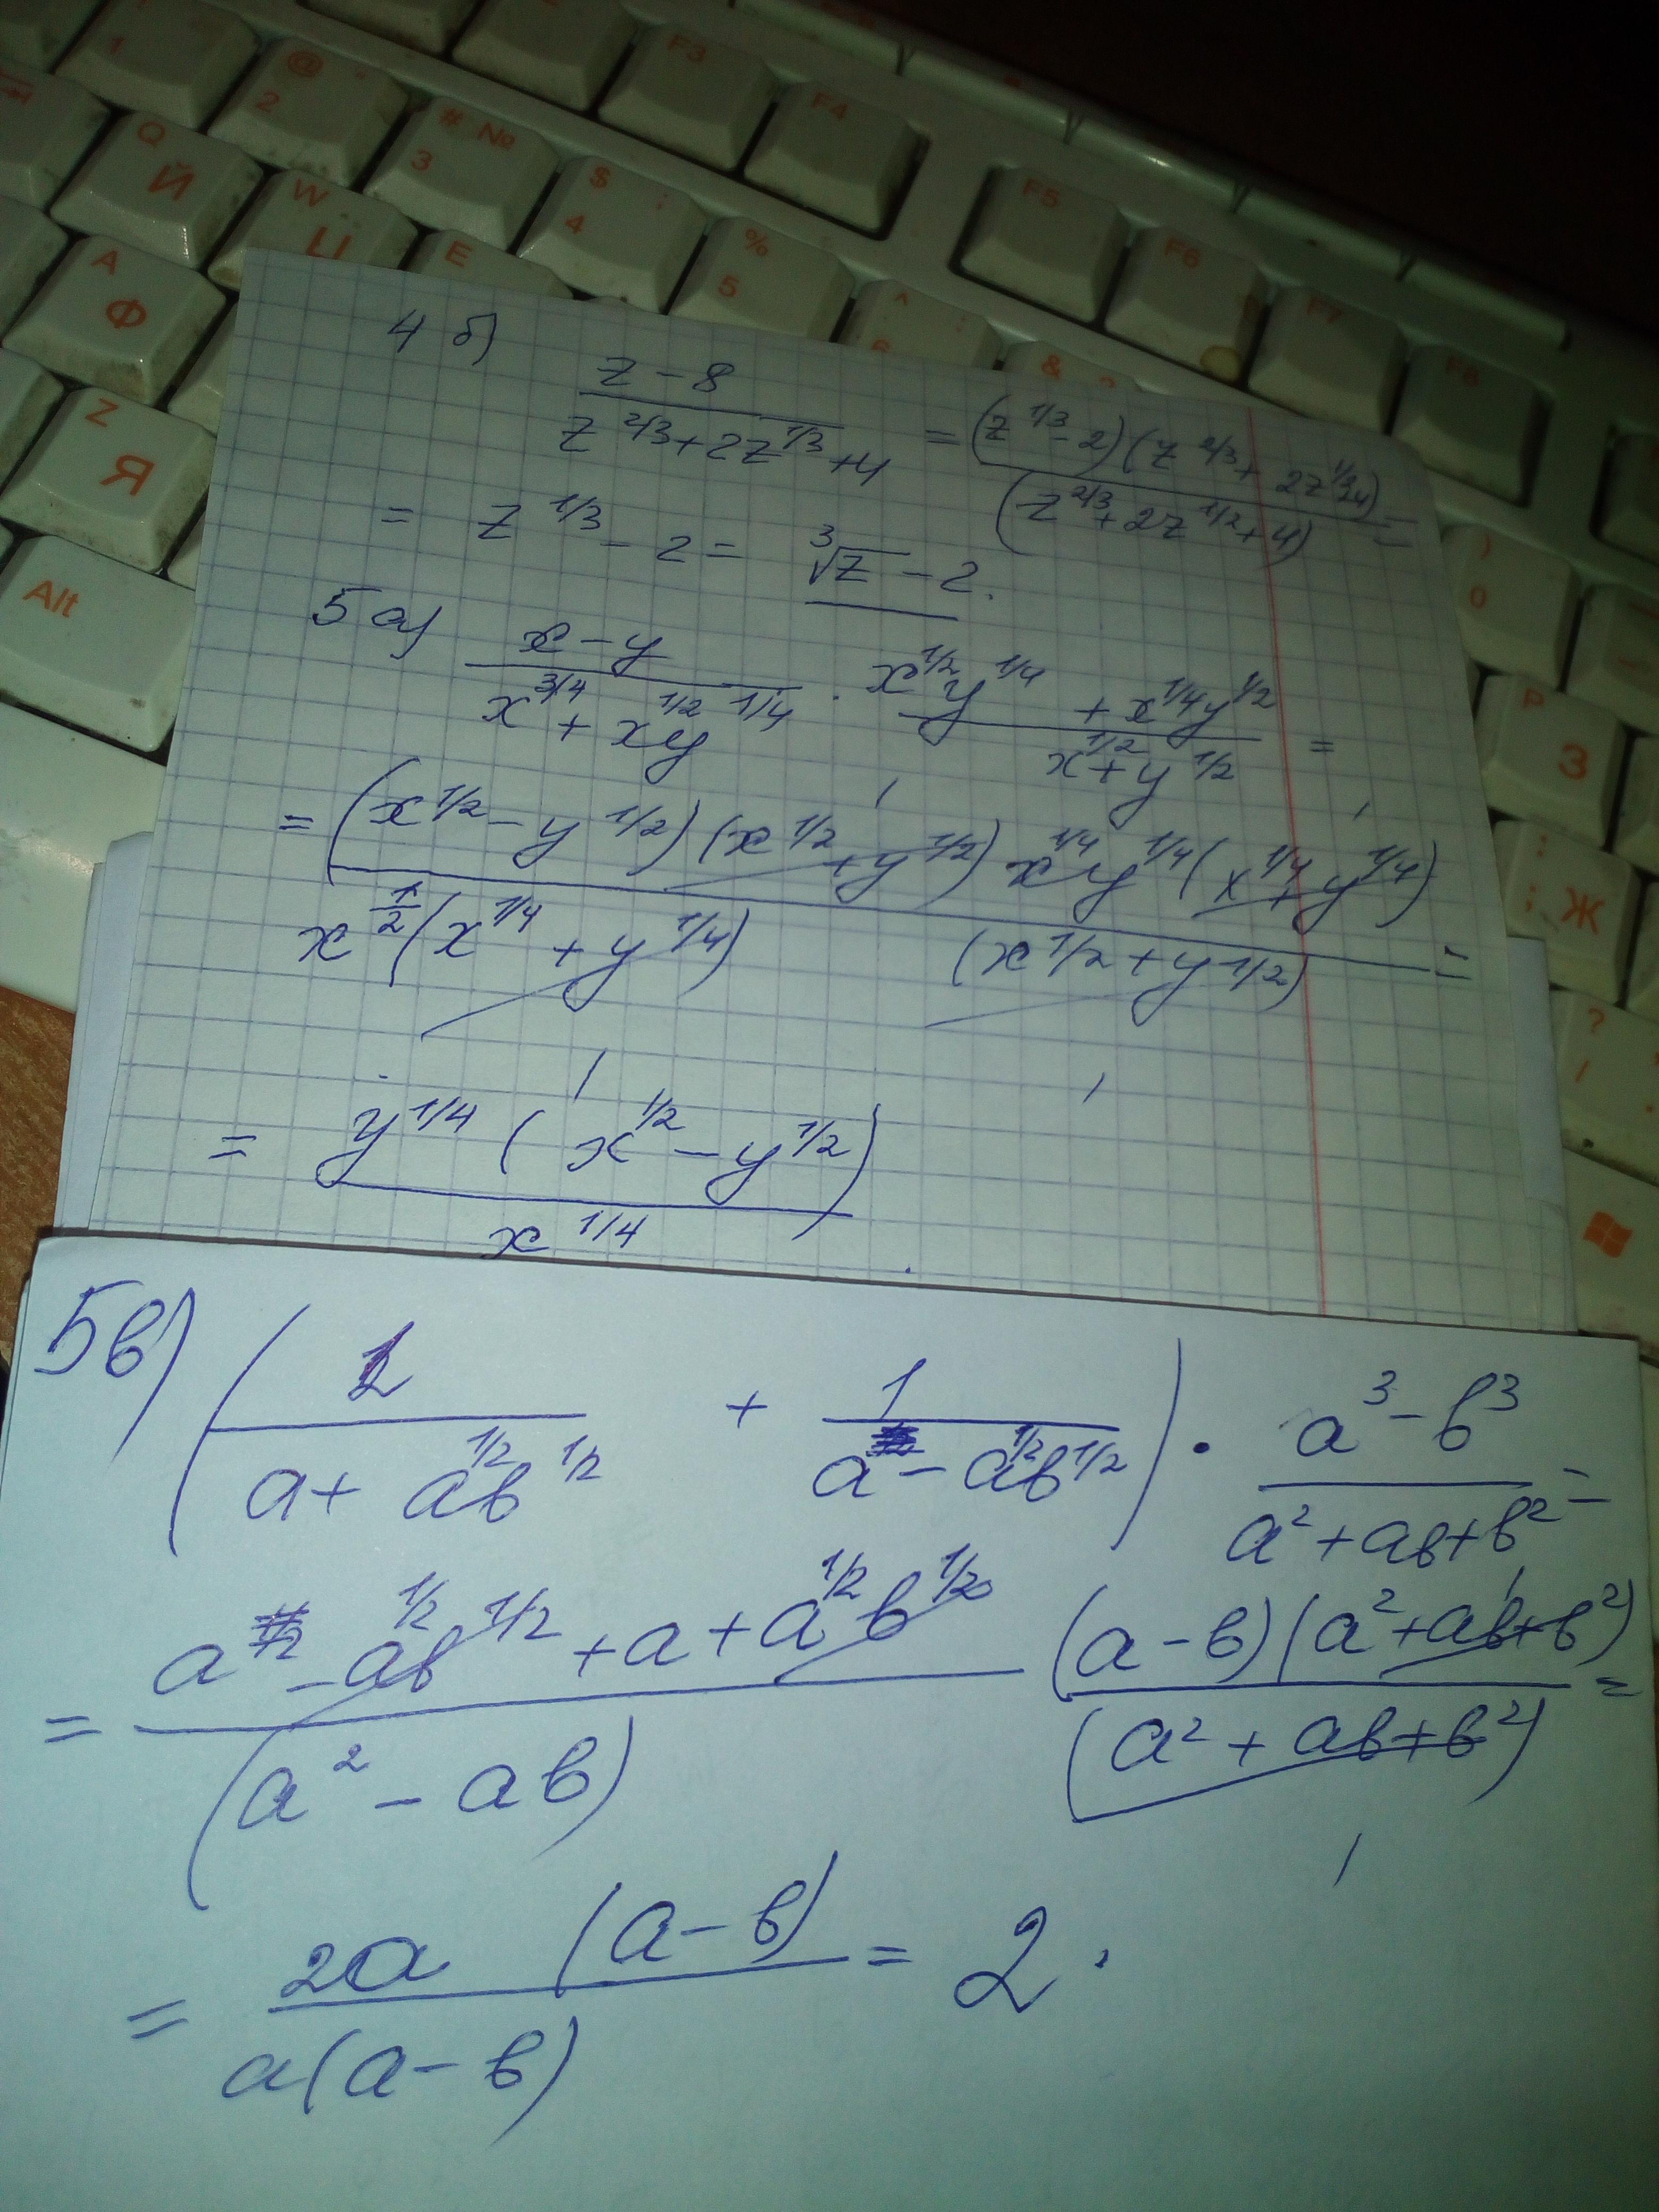 1
@
2
# №
3
F3
F4
Q
Й
W
Ц
E
$ ;
4
%
5
F5
F6
F7
F8
A
Ф
^ :
6
&
Z
Я
Alt
)
0
P
З
: ;
Ж
?
/
4 б) (z - 8)/(z^2/3 + 2z^1/3 + 4) = ((z^1/3 - 2)(z^2/3 + 2z^1/3+4))/((z^2/3 + 2z^1/2 + 4)) =
= z^1/3 - 2 = ∛z - 2.
5 а) (x - y)/(x^3/4 + x^1/2 y^1/4) · (x^1/2 y^1/4 + x^1/4 y^1/2)/(x^1/2 + y^1/2) =
= ((x^1/2 - y^1/2)(x^1/2 + y^1/2) x^1/4 y^1/4 (x^1/4 + y^1/4))/(x^1/2 (x^1/4 + y^1/4) (x^1/2 + y^1/2)) =
= (y^1/4 (x^1/2 - y^1/2))/(x^1/4)
5в) (1/(a + a^1/2 в^1/2) + 1/(a - a^1/2 в^1/2)) · (a^3 - в^3)/(a^2 + aв + в^2) =
= (a - a^1/2 в^1/2 + a + a^1/2 в^1/2)/((a^2 - aв)) ((a - в)(a^2 + aв + в^2))/((a^2 + aв + в^2)) =
= (2a (a - в))/(a(a - в)) = 2.